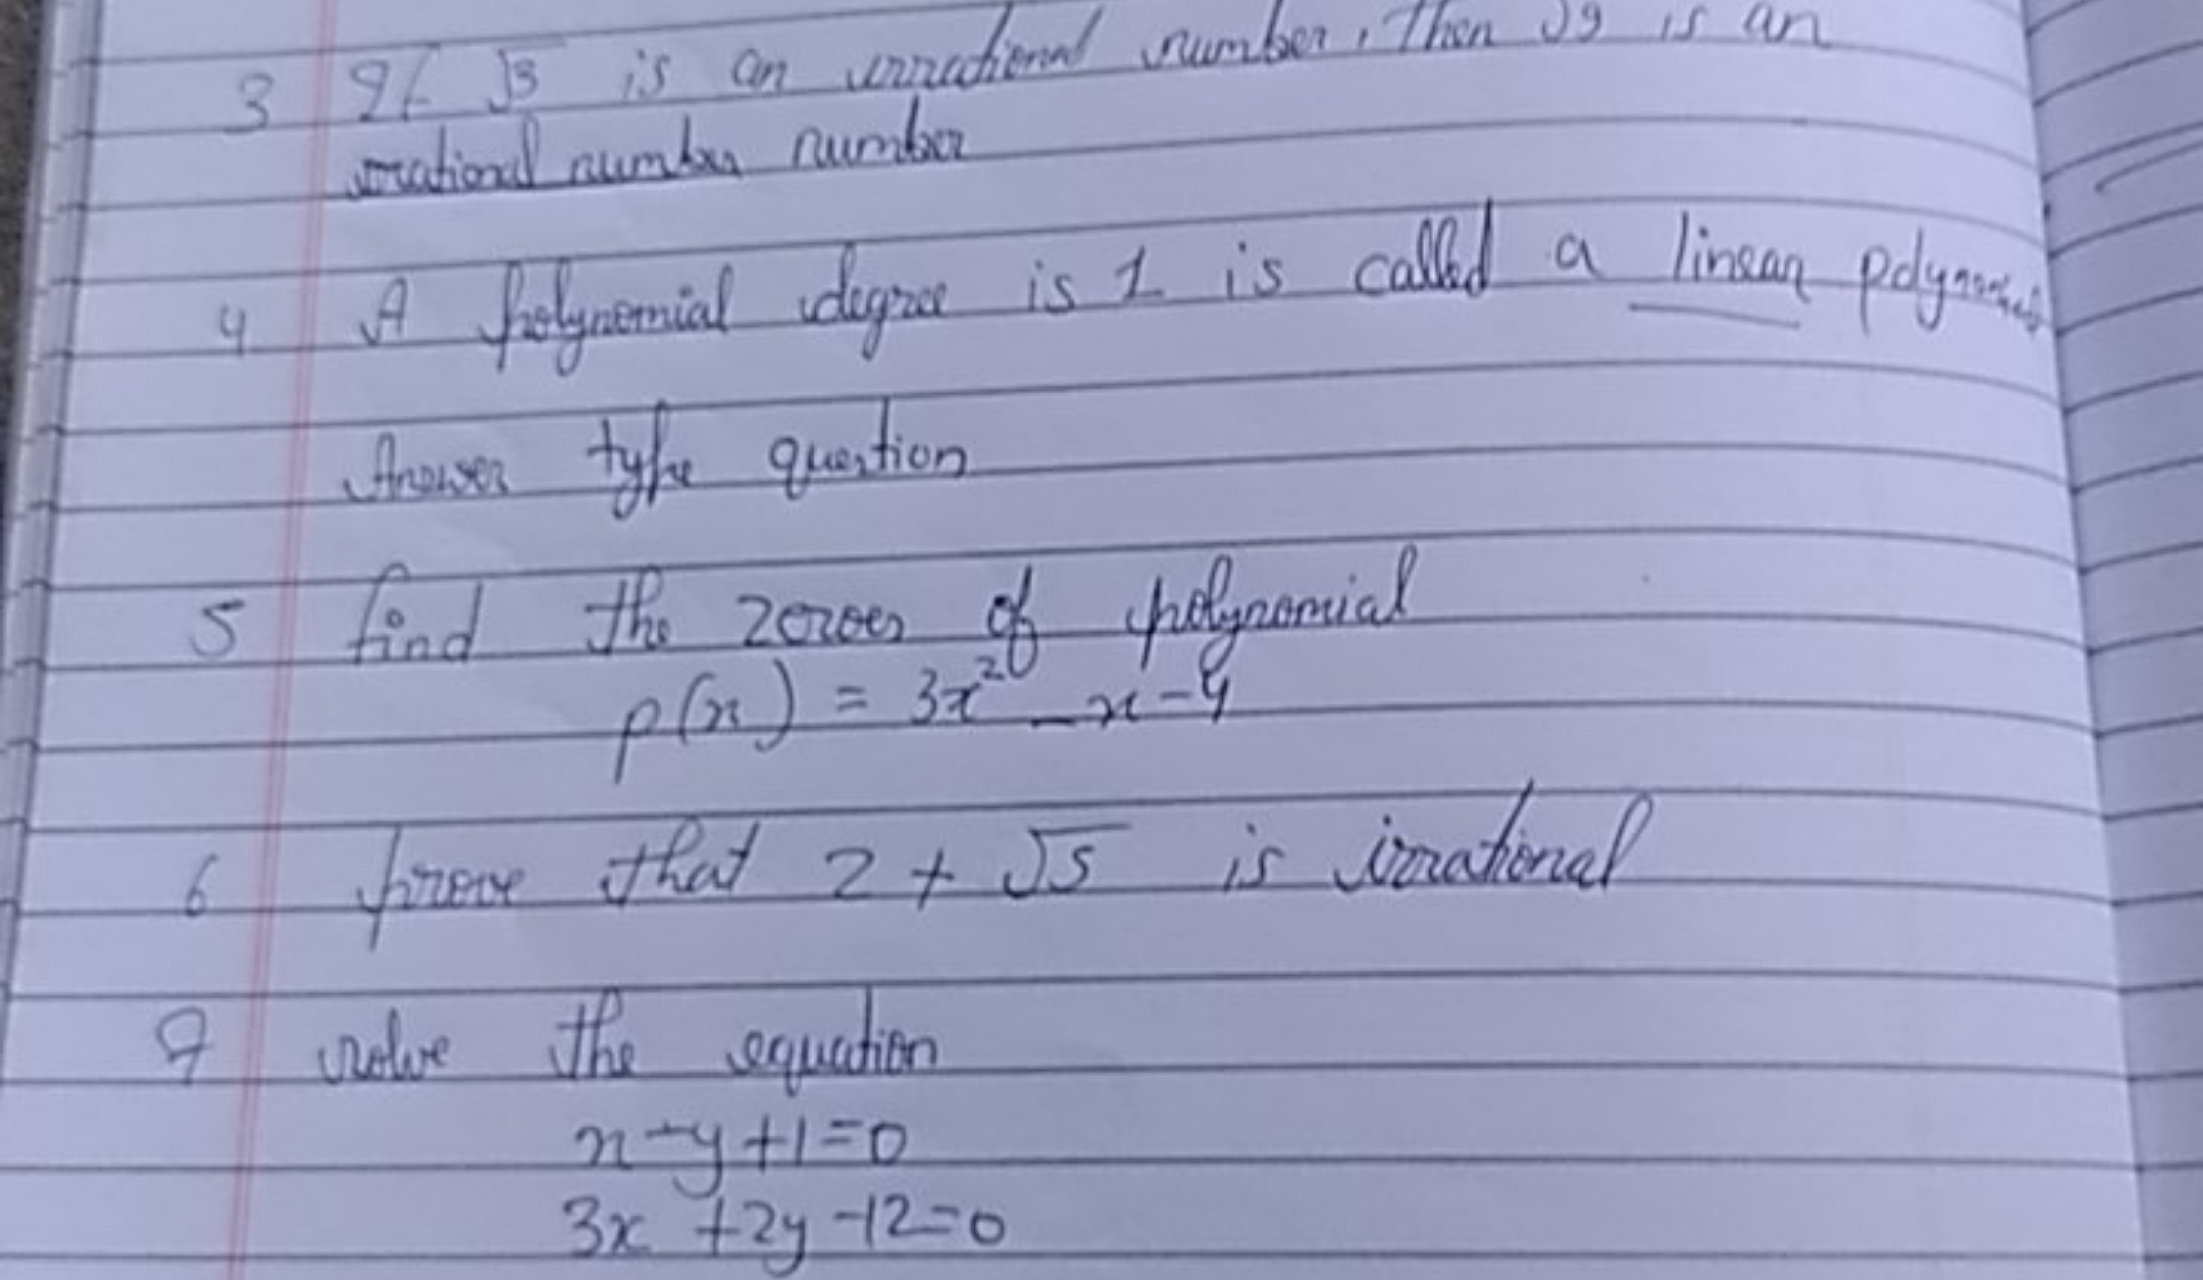 3 If √3 is an irrational number, then √9 is an
irrational number number
4 A polynomial degree is 1 is called a linear polynomial
Answer type question
5 find the zeroes of polynomial
p(x) = 3x² - x - 4
6 prove that 2 + √5 is irrational
7 solve the equation
x - y + 1 = 0
3x + 2y - 12 = 0